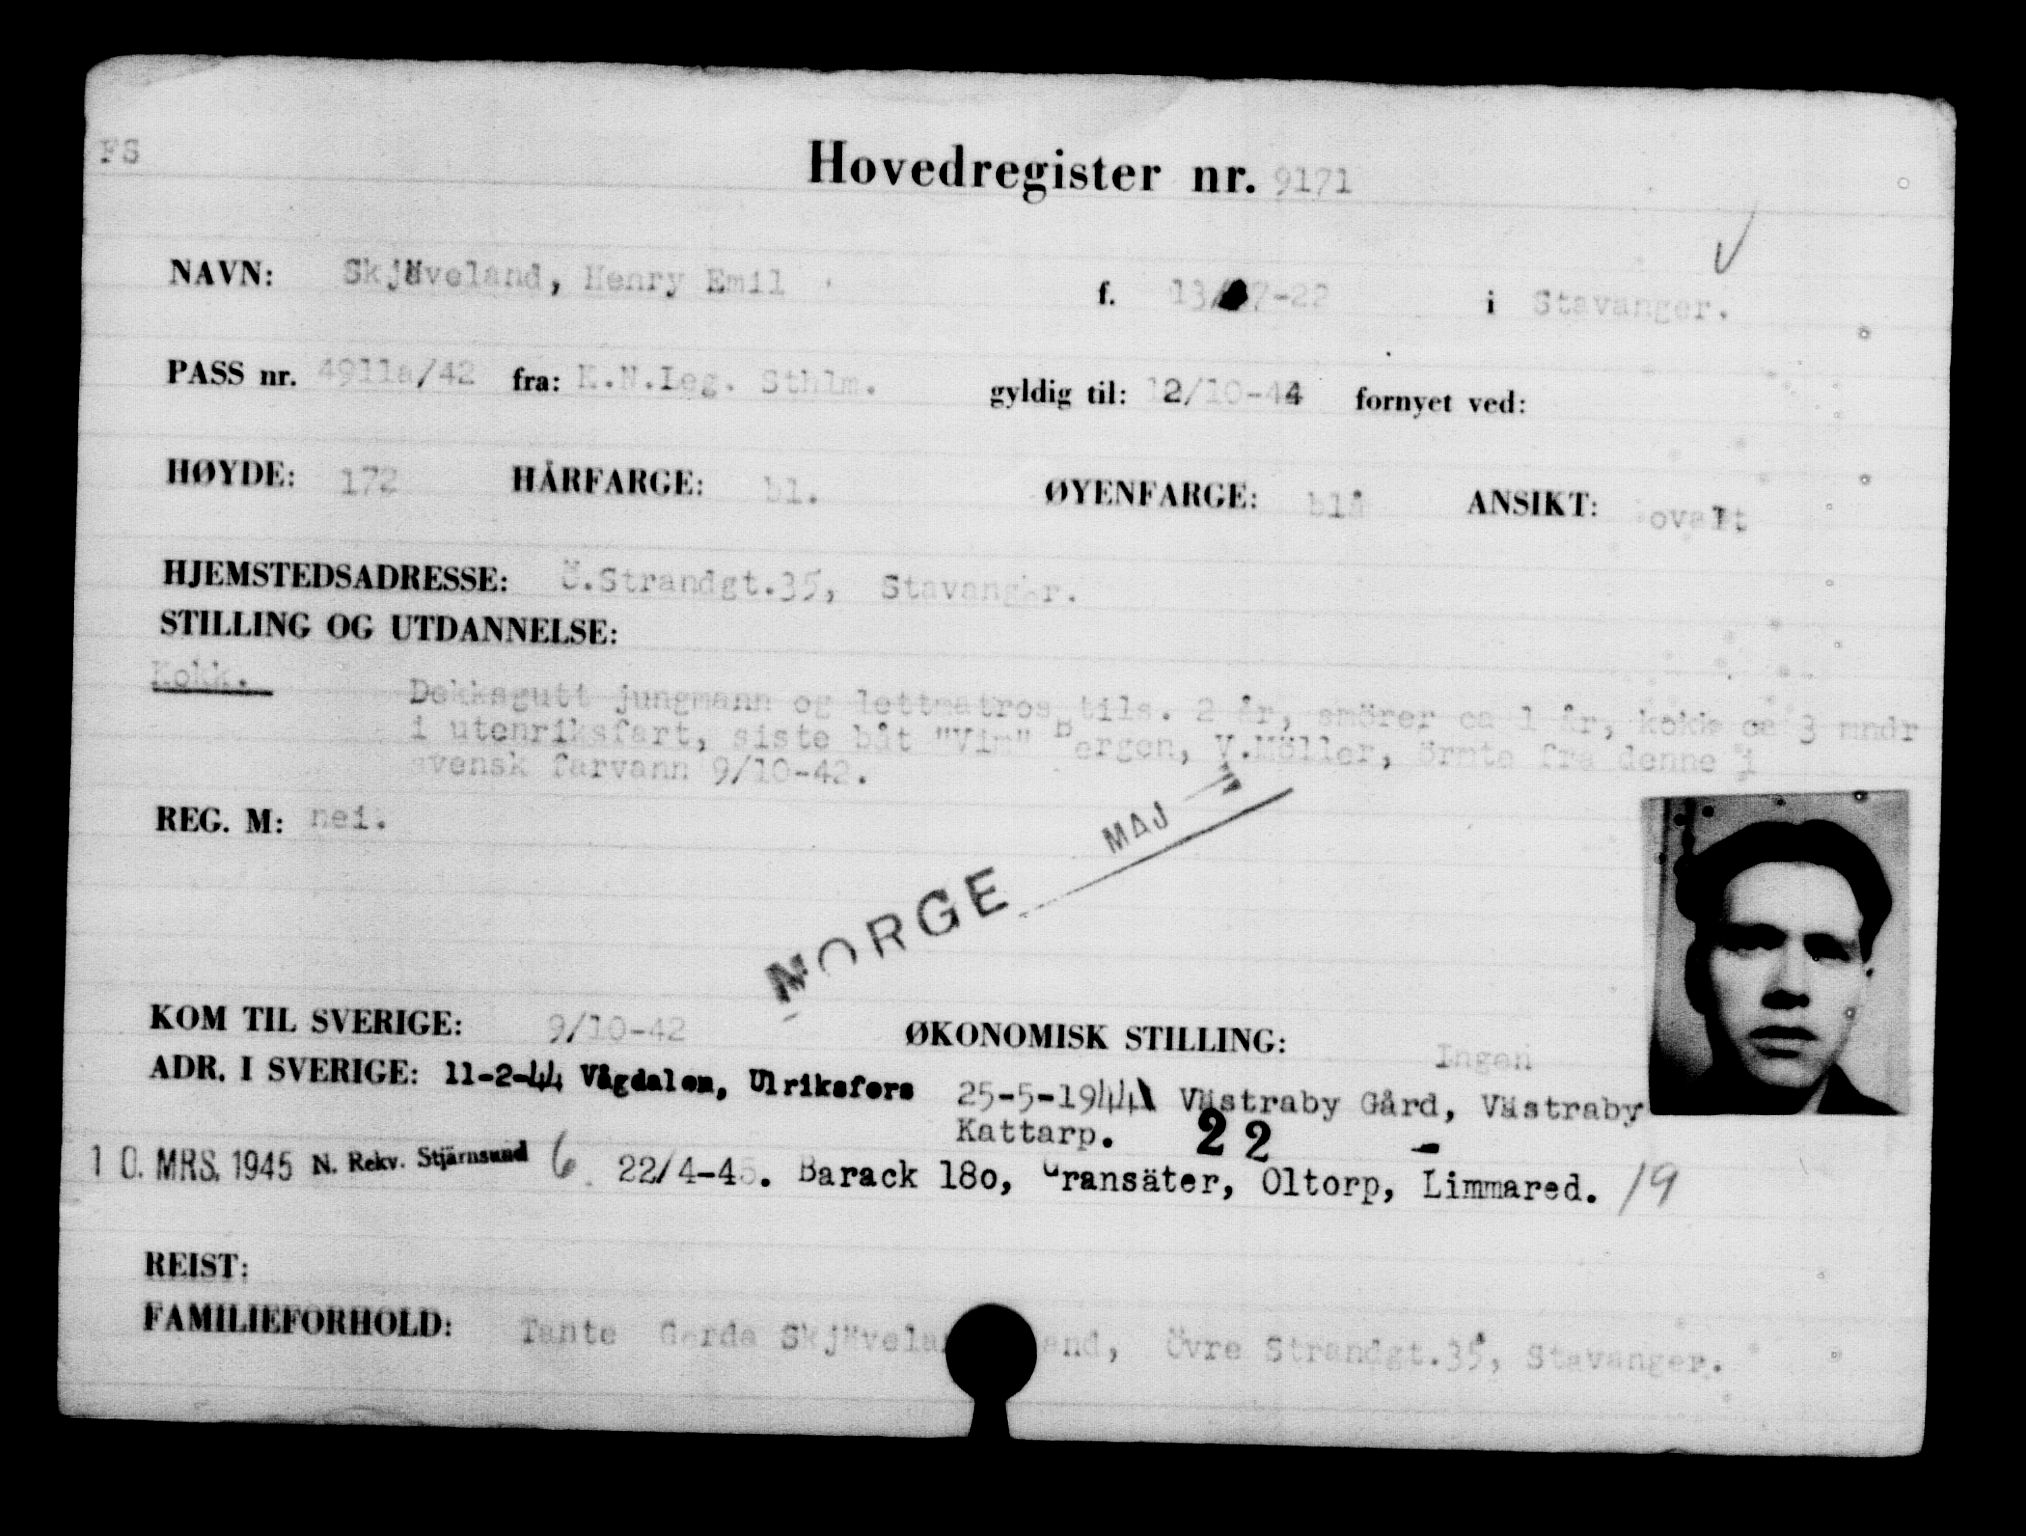 FS
Hovedregister nr. 9171
NAVN: Skjäveland, Henry Emil f. 13/7-22 i Stavanger.
PASS nr. 4911a/42 fra: K.N.Leg. Sthlm. gyldig til: 12/10-44 fornyet ved:
HØYDE: 172 HÅRFARGE: bl. ØYENFARGE: blå ANSIKT: ovalt
HJEMSTEDSADRESSE: Ö.Strandgt.35, Stavanger.
STILLING OG UTDANNELSE:
Kokk. Dekksgutt jungmann og lettmatros tils. 2 år, smörer ca 1 år, kokk ca 3 mndr
i utenriksfart, siste båt "Vim" Bergen, V.Möller, örmte fra denne i
svensk farvann 9/10-42.
REG. M: nei.
NORGE MAJ
KOM TIL SVERIGE: 9/10-42 ØKONOMISK STILLING: Ingen
ADR. I SVERIGE: 11-2-44 Vågdalen, Ulriksfors 25-5-1944 Västraby Gård, Västraby
Kattarp. 22 -
10. MRS. 1945 N. Rekv. Stjärnsund 6 22/4-45. Barack 18o, Gransäter, Oltorp, Limmared. 19
REIST:
FAMILIEFORHOLD: Tante Gerda Skjäveland, Övre Strandgt.35, Stavanger.